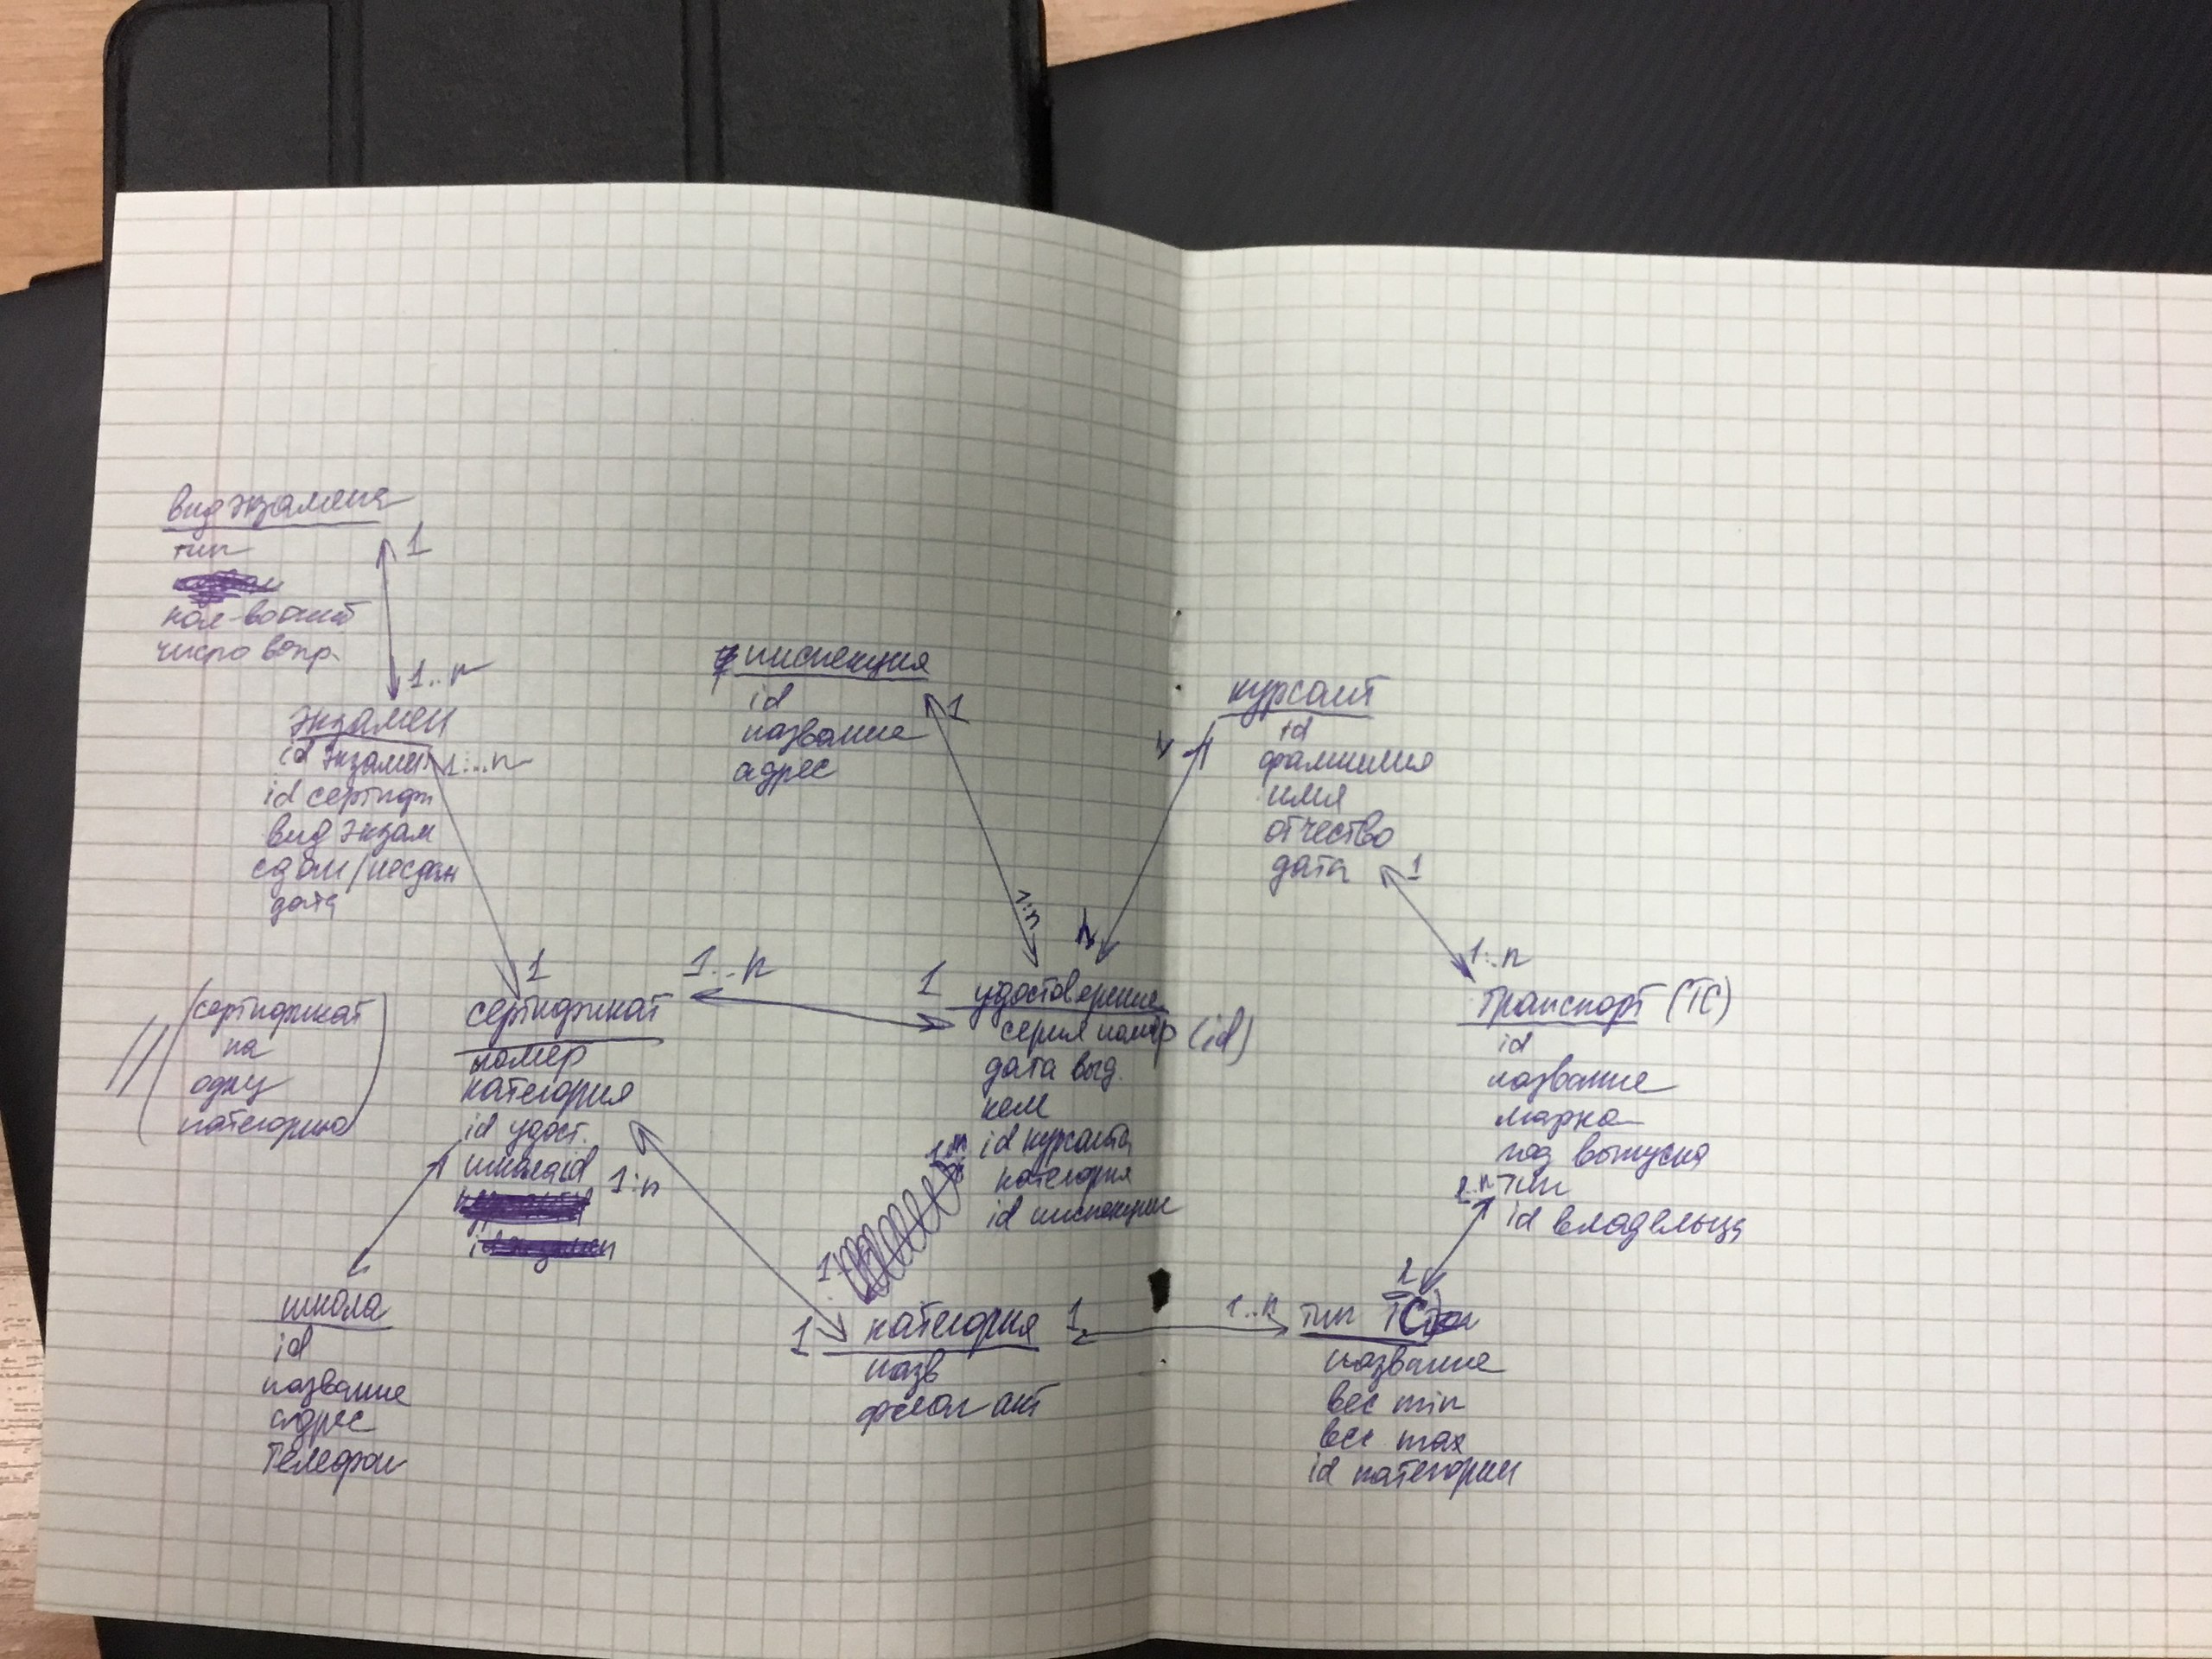 вид экзамена
тип
кол-во
число вопр.
1
1..n
экзамен
id экзамен
1..n
id сертиф
вид экзам
сдан/несдан
дата
инспекция
id
название
адрес
1
1:n
курсант
id
фамилия
имя
отчество
дата
1
1..n
(сертификат
на
одну
категорию)
1
сертификат
номер
категория
id удост.
школа id
1:n
1..n
1
удостоверение
серия номер (id)
дата выд.
кем
id курсанта
категория
id инспекции
транспорт (ТС)
id
название
марка
год выпуска
тип
id владельца
школа
id
название
адрес
телефон
1
1
категория
назв
флаг акт
1
1..n
тип ТС
название
вес min
вес max
id категории